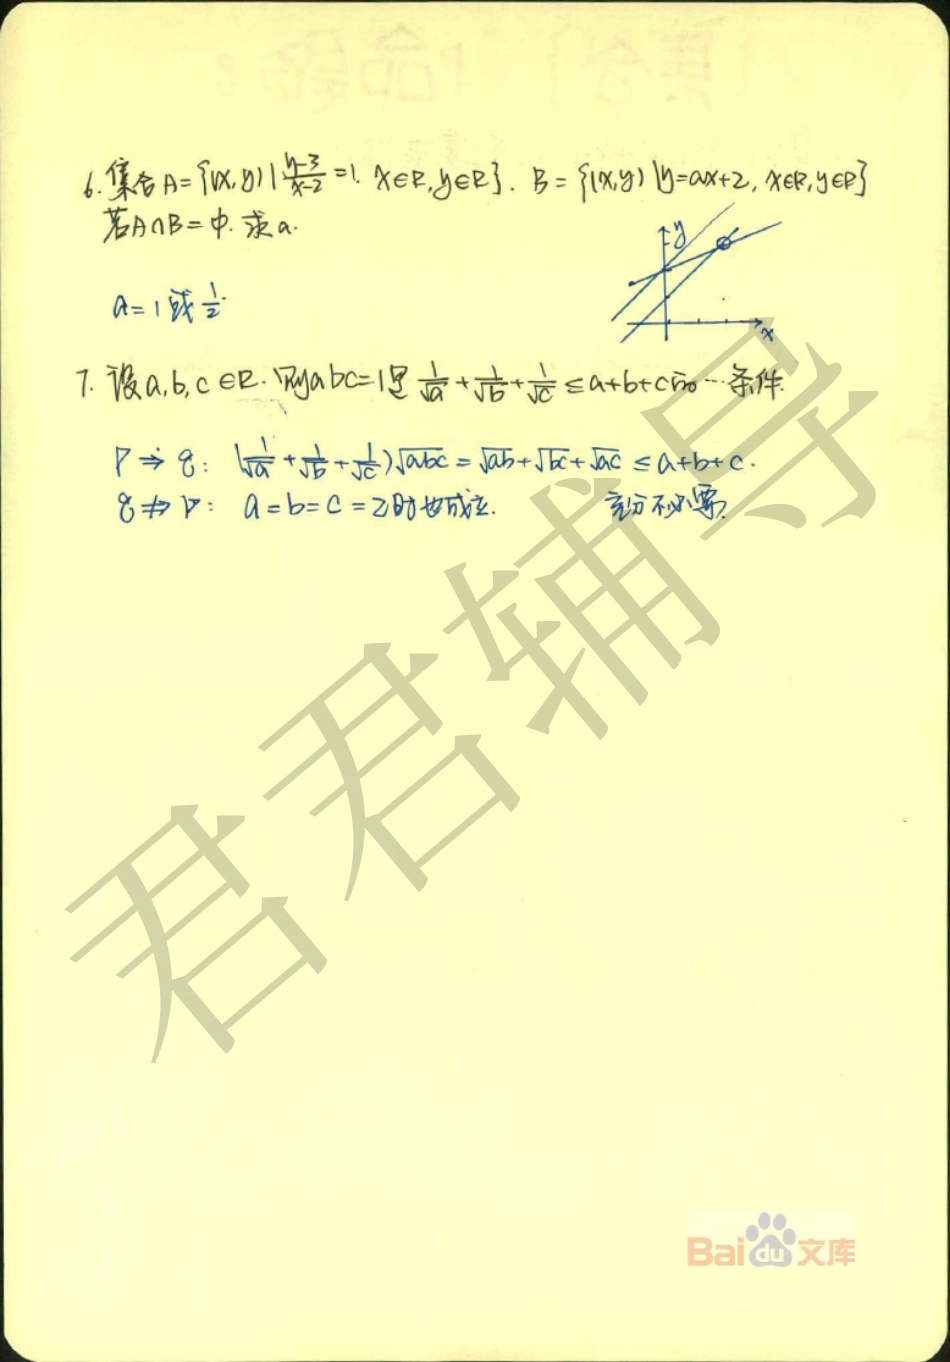 6. 集合A={(x,y)|\frac{y-3}{x-2}=1. x∈R,y∈R}. B={(x,y)|y=ax+2, x∈R,y∈R}
若A∩B=φ. 求a.
y
x
a=1或\frac{1}{2}.
7. 设a,b,c∈R. 则abc=1是\frac{1}{\sqrt{a}}+\frac{1}{\sqrt{b}}+\frac{1}{\sqrt{c}}≤a+b+c的…条件.
P⇒q: (\frac{1}{\sqrt{a}}+\frac{1}{\sqrt{b}}+\frac{1}{\sqrt{c}})\sqrt{abc}=\sqrt{ab}+\sqrt{bc}+\sqrt{ac}≤a+b+c.
q⇏P: a=b=c=2时也成立. 充分不必要.
君君辅导
Baidu文库